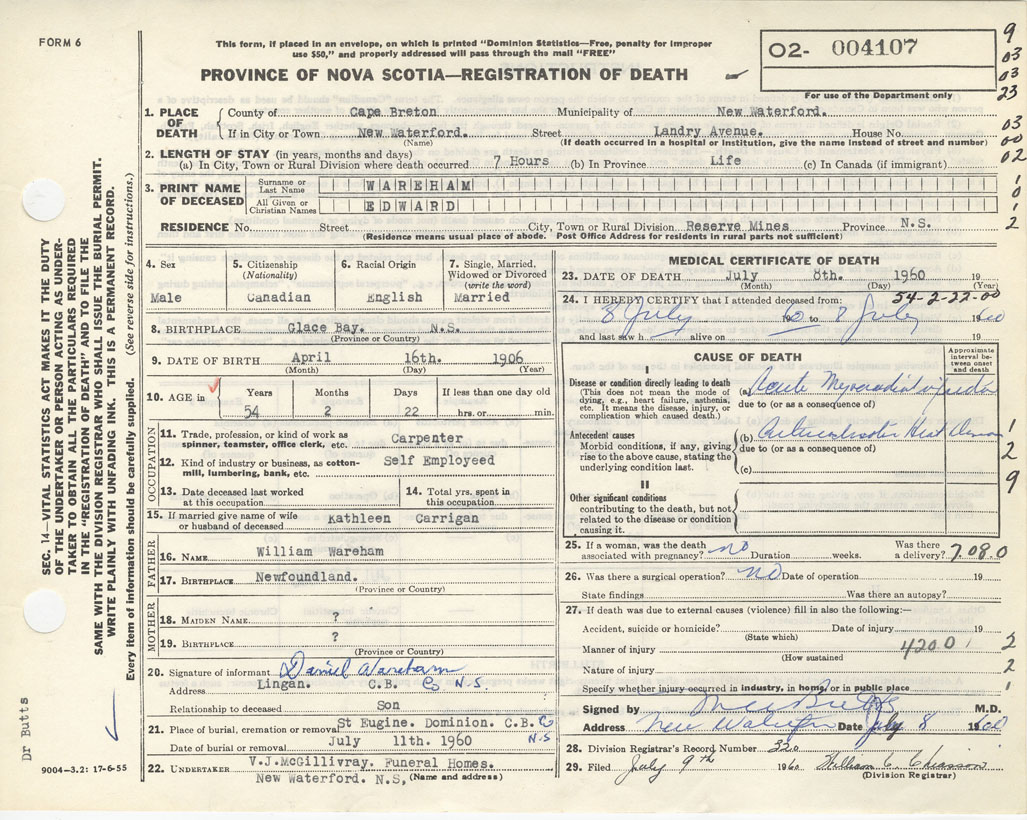 FORM 6
This form, if placed in an envelope, on which is printed "Dominion Statistics—Free, penalty for improper
use $50," and properly addressed will pass through the mail "FREE"
PROVINCE OF NOVA SCOTIA—REGISTRATION OF DEATH
02- 004107
For use of the Department only
9
03
03
23
03
00
02
1
0
1
2
1. PLACE OF DEATH
County of Cape Breton Municipality of New Waterford.
If in City or Town New Waterford. Street Landry Avenue. House No.
(Name) (If death occurred in a hospital or institution, give the name instead of street and number)
2. LENGTH OF STAY (in years, months and days)
(a) In City, Town or Rural Division where death occurred 7 Hours (b) In Province Life (c) In Canada (if immigrant)
3. PRINT NAME OF DECEASED
Surname or Last Name WAREHAM
All Given or Christian Names EDWARD
RESIDENCE No. Street City, Town or Rural Division Reserve Mines Province N.S.
(Residence means usual place of abode. Post Office Address for residents in rural parts not sufficient)
4. Sex
Male
5. Citizenship
(Nationality)
Canadian
6. Racial Origin
English
7. Single, Married,
Widowed or Divorced
(write the word)
Married
8. BIRTHPLACE Glace Bay. N.S.
(Province or Country)
9. DATE OF BIRTH April 16th. 1906
(Month) (Day) (Year)
10. AGE in
Years Months Days If less than one day old
54 2 22 hrs. or min.
OCCUPATION
11. Trade, profession, or kind of work as
spinner, teamster, office clerk, etc. Carpenter
12. Kind of industry or business, as cotton-
mill, lumbering, bank, etc. Self Employeed
13. Date deceased last worked
at this occupation
14. Total yrs. spent in
this occupation
15. If married give name of wife
or husband of deceased Kathleen Carrigan
FATHER
16. NAME William Wareham
17. BIRTHPLACE Newfoundland.
(Province or Country)
MOTHER
18. MAIDEN NAME ?
19. BIRTHPLACE ?
(Province or Country)
20. Signature of informant Daniel Wareham
Address Lingan. C.B. Co N.S.
Relationship to deceased Son
21. Place of burial, cremation or removal St Eugine. Dominion. C.B. Co
N.S
Date of burial or removal July 11th. 1960
22. UNDERTAKER V.J.McGillivray. Funeral Homes.
New Waterford. N.S, (Name and address)
MEDICAL CERTIFICATE OF DEATH
23. DATE OF DEATH July 8th. 1960 19
(Month) (Day) (Year)
54-2-22-00
24. I HEREBY CERTIFY that I attended deceased from:
8 July 19 60 to 8 July 19 60
and last saw h alive on 19
CAUSE OF DEATH
Approximate
interval be-
tween onset
and death
I
Disease or condition directly leading to death
(This does not mean the mode of
dying, e.g., heart failure, asthenia,
etc. It means the disease, injury, or
complication which caused death.)
(a) Acute Myocardial
due to (or as a consequence of)
Antecedent causes
Morbid conditions, if any, giving
rise to the above cause, stating the
underlying condition last.
(b) Heart
due to (or as a consequence of)
(c)
1
2
9
II
Other significant conditions
contributing to the death, but not
related to the disease or condition
causing it.
25. If a woman, was the death
associated with pregnancy? no Duration weeks. Was there
a delivery? 7.08.0
26. Was there a surgical operation? no Date of operation 19
State findings Was there an autopsy?
27. If death was due to external causes (violence) fill in also the following:—
Accident, suicide or homicide? Date of injury 19
(State which)
Manner of injury 420.0
(How sustained)
Nature of injury
Specify whether injury occurred in industry, in home, or in public place
2
2
1
Signed by M.D.
Address New Waterford Date July 8 1960
28. Division Registrar's Record Number 320
29. Filed July 9th 1960 William C. Chiasson
(Division Registrar)
SEC. 14—VITAL STATISTICS ACT MAKES IT THE DUTY
OF THE UNDERTAKER OR PERSON ACTING AS UNDER-
TAKER TO OBTAIN ALL THE PARTICULARS REQUIRED
IN THE "REGISTRATION OF DEATH" AND TO FILE THE
SAME WITH THE DIVISION REGISTRAR WHO SHALL ISSUE THE BURIAL PERMIT.
WRITE PLAINLY WITH UNFADING INK. THIS IS A PERMANENT RECORD.
Every item of information should be carefully supplied. (See reverse side for instructions.)
Dr Butts
9004—3.2: 17-6-55